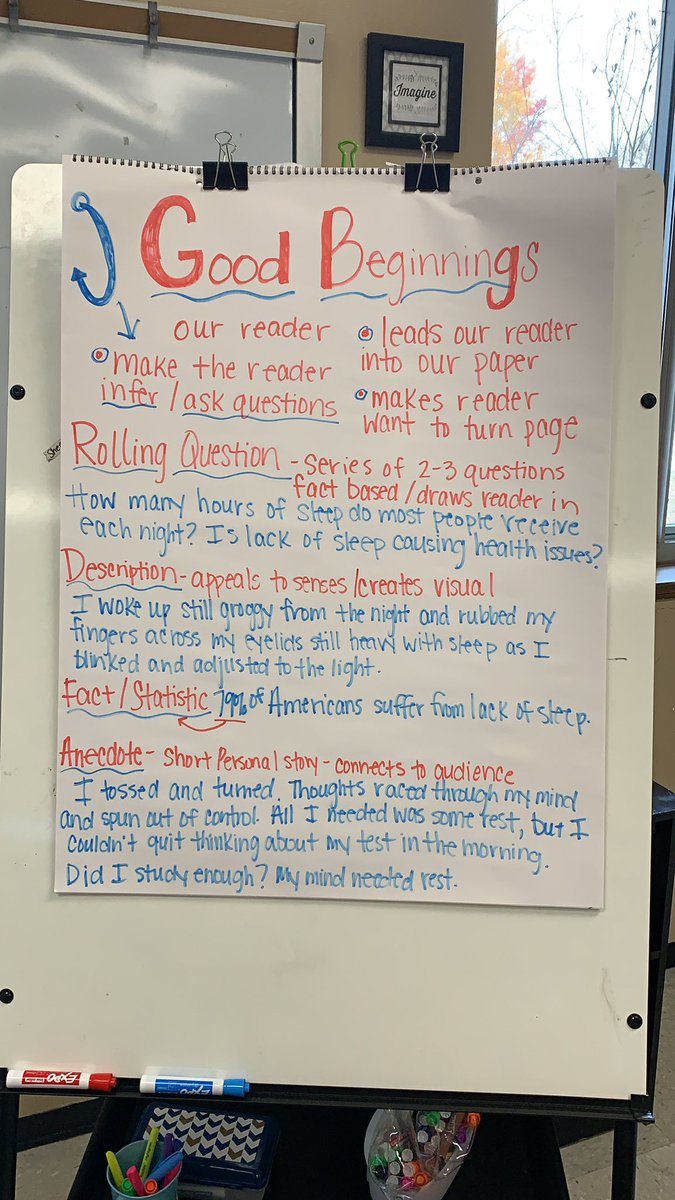 Imagine
Good Beginnings
our reader
• make the reader
infer / ask questions
• leads our reader
into our paper
• makes reader
want to turn page
Rolling Question - series of 2-3 questions
fact based / draws reader in
How many hours of sleep do most people receive
each night? Is lack of sleep causing health issues?
Description - appeals to senses / creates visual
I woke up still groggy from the night and rubbed my
fingers across my eyelids still heavy with sleep as I
blinked and adjusted to the light.
Fact / Statistic 79% of Americans suffer from lack of sleep.
Anecdote - Short Personal story - connects to audience
I tossed and turned. Thoughts raced through my mind
and spun out of control. All I needed was some rest, but I
couldn't quit thinking about my test in the morning.
Did I study enough? My mind needed rest.
EXPO
EXPO